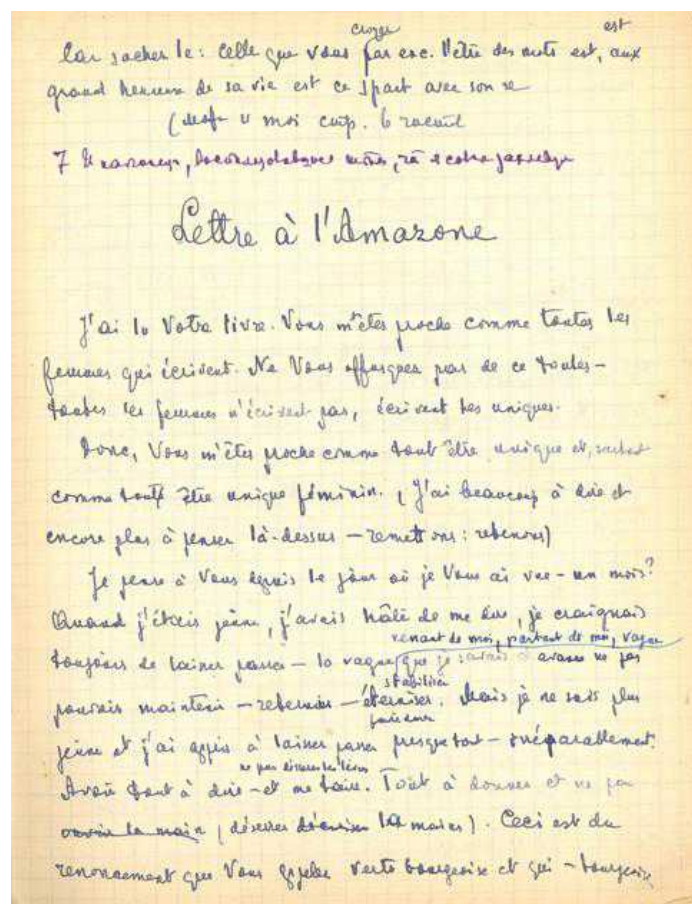 croyez est
Car sachez le: Celle que vous par exc. l'être des mots est, aux
grand heures de sa vie est ce
moi
Lettre à l'Amazone
J'ai lu Votre livre. Vous m'êtes proche comme toutes les
femmes qui écrivent. Ne Vous offusquez pas de ce toutes –
toutes les femmes n'écrivent pas, écrivent les uniques.
Donc, Vous m'êtes proche comme tout être unique et, surtout
comme tout être unique féminin. (J'ai beaucoup à dire et
encore plus à penser là-dessus – remettons: retenons)
Je pense à Vous depuis le jour où je Vous ai vue – un mois?
Quand j'étais jeune, j'avais hâte de me dire, je craignais
venant de moi, partant de moi, vague
toujours de laisser passer – la vague que je savais d'avance ne pas
stabiliser
pouvoir maintenir – retenir – éterniser. Mais je ne suis plus
jeune et j'ai appris à laisser passer presque tout – irréparablement.
ne pas desserrer les lèvres
Avoir tout à dire – et me taire. Tout à donner et ne pas
ouvrir la main (desserrer la main). Ceci est du
renoncement que Vous appelez vertu bourgeoise et qui – bourgeoise